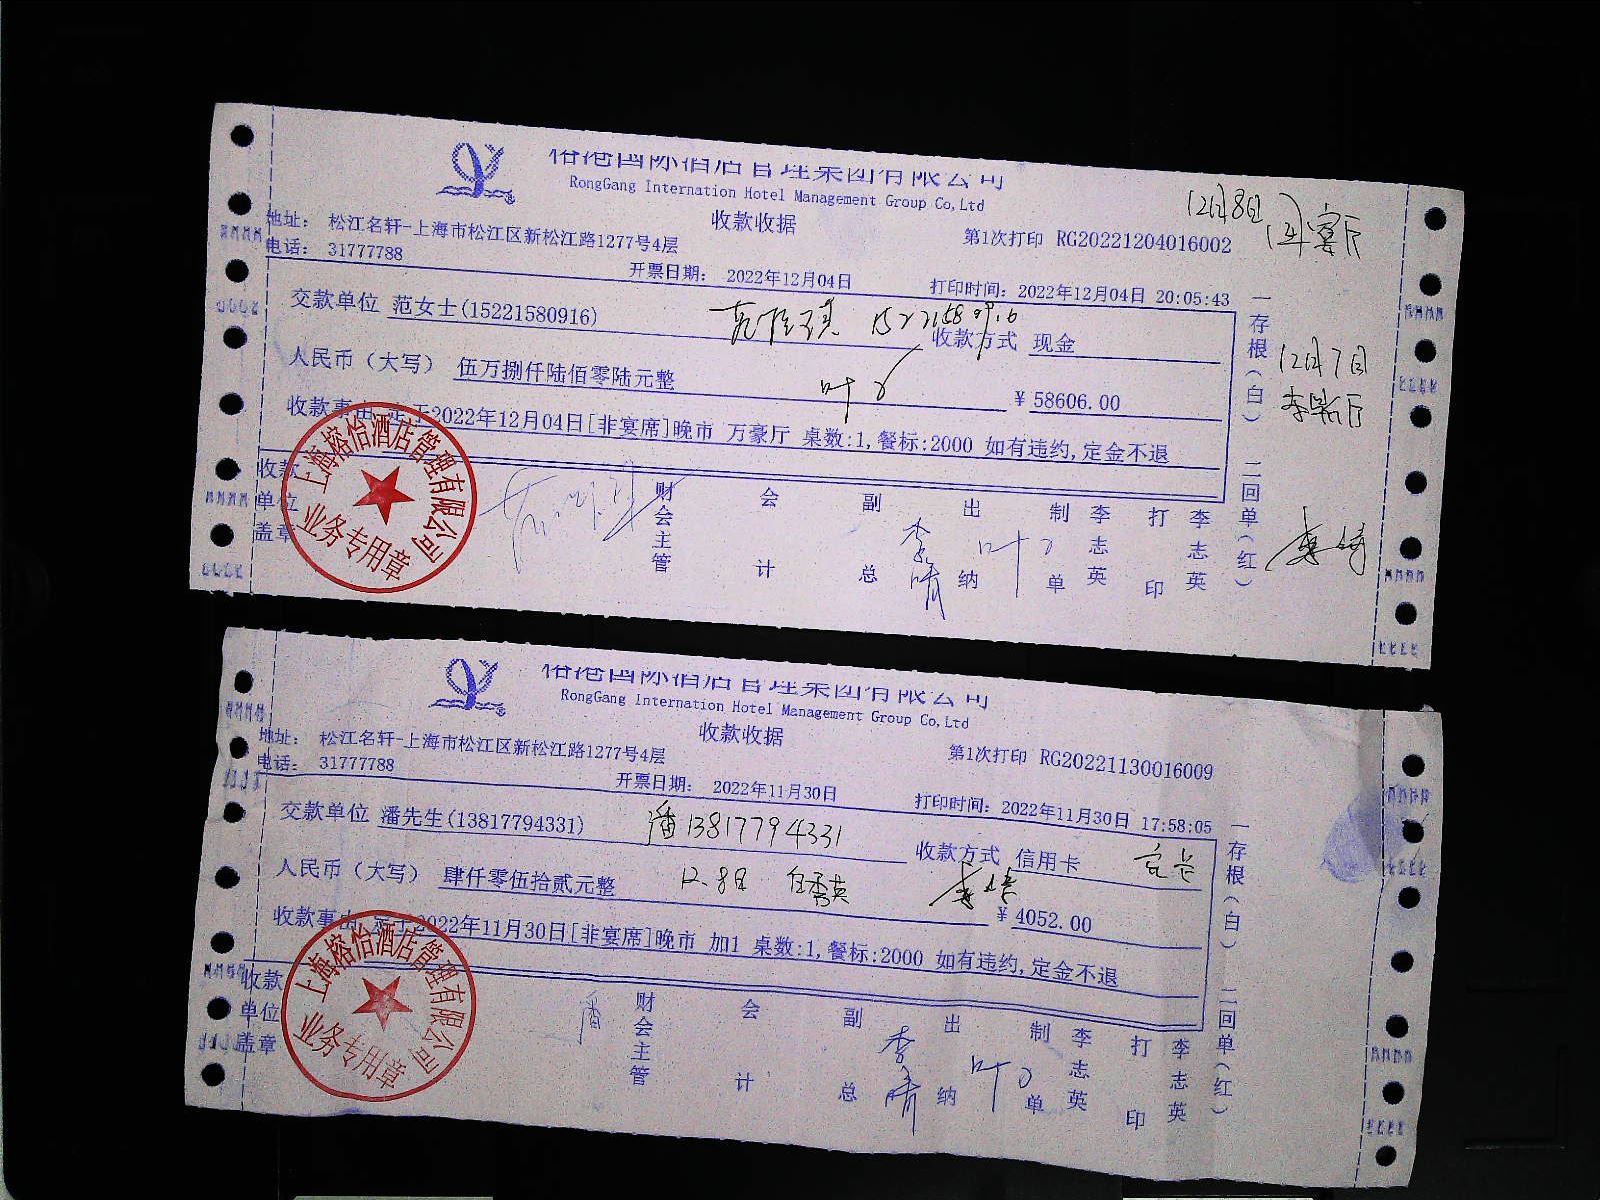 裕港国际酒店管理集团有限公司
RongGang Internation Hotel Management Group Co,Ltd
收款收据
12月8日
宴厅
地址： 松江名轩-上海市松江区新松江路1277号4层
第1次打印 RG20221204016002
电话： 31777788
开票日期： 2022年12月04日
打印时间：2022年12月04日 20:05:43
交款单位 范女士(15221580916)
15221580916
收款方式 现金
人民币（大写） 伍万捌仟陆佰零陆元整
叶
￥58606.00
12月7日
收款事由 定于2022年12月04日[非宴席]晚市 万豪厅 桌数:1,餐标:2000 如有违约,定金不退
一存根（白） 二回单（红）
收款单位盖章
上海榕怡酒店管理有限公司
业务专用章
财会主管
会计
副总
出纳
叶
制单
李志英
打印
李志英
裕港国际酒店管理集团有限公司
RongGang Internation Hotel Management Group Co,Ltd
收款收据
地址： 松江名轩-上海市松江区新松江路1277号4层
第1次打印 RG20221130016009
电话： 31777788
开票日期： 2022年11月30日
打印时间：2022年11月30日 17:58:05
交款单位 潘先生(13817794331)
潘 13817794331
收款方式 信用卡
人民币（大写） 肆仟零伍拾贰元整
12.8日
￥4052.00
收款事由 定于2022年11月30日[非宴席]晚市 加1 桌数:1,餐标:2000 如有违约,定金不退
一存根（白） 二回单（红）
收款单位盖章
上海榕怡酒店管理有限公司
业务专用章
潘
财会主管
会计
副总
出纳
叶
制单
李志英
打印
李志英